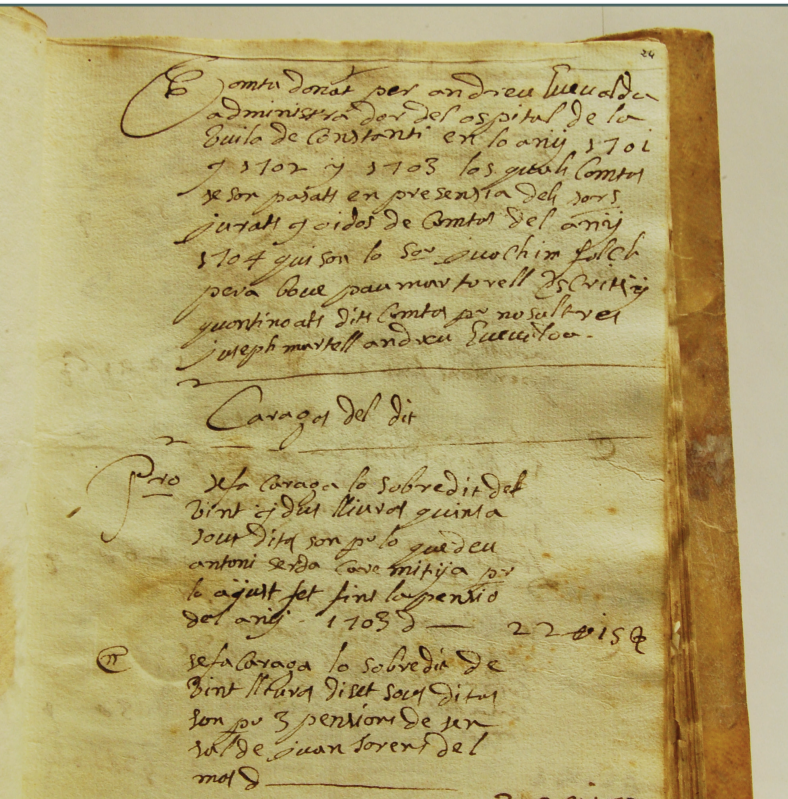 24
Comta donat per andreu
administrador del ospital de la
Vuila de Constanti en lo anÿ 1701
y 1702 y 1703 los quals Comtos
se son pasats en presensia dels sors
jurats y oidos de Comtos del anÿ
1704 qui son lo Sor juochim folch
pera boue pau martorell
dits Comtos per nosaltres
juseph martell andreu
Caragos del dit
Pro sefa Caraga lo sobredit del
Vint y dus lliuras quinsa
sous dits son pr lo que deu
antoni serda mitija pr
lo ajust fet fins la pensio
del anÿ 1703 d — 22 15
sefa Caraga lo sobredit de
Vint lluras diset sous ditas
son pr 3 pensions de sen
sal de juan sorens del
mas d